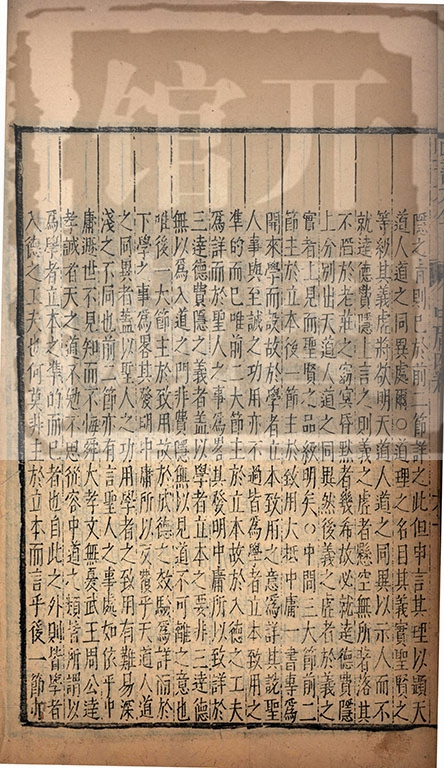 隱之言則已於前二節詳之此但申言其理以顯天
道人道之同異處爾○道理之名曰其義實聖賢之
等級其義虛將欲明天道人道之同異以示人而不
就達德費隱上言之則義之虛者懸空無所著落其
不陷於老莊之窈冥昏默者幾希故必就達德費隱
上分別出天道人道之同異然後義之虛者於義之
實者上見而聖賢之品級明矣○中間三大節前二
節主於立本後一節主於致用大抵中庸一書專為
開來學而設故於學者立本致用之意為詳其說聖
人事與至誠之功用亦不過皆為學者立本致用之
準的而已唯前一大節主於立本故於入德之工夫
為詳而於聖人之事為畧其發明中庸所以致詳於
三達德費隱之義者蓋以學者立本之要非三達德
無以為入道之門非費隱無以見道不可離之意也
唯後一大節主於致用故於成德之效驗為詳而於
下學之事為畧其發明中庸所以反覆乎天道人道
之同異者蓋以聖人之功用學者之致用有難易深
淺之不同也前二節亦有言聖人之事處如依乎中
庸遯世不見知而不悔舜大孝文無憂武王周公達
孝誠者天之道不勉不思從容中道之類皆所謂以
為學者立本之準的而已者也自此之外則皆學者
入德之工夫也何莫非主於立本而言乎後一節亦